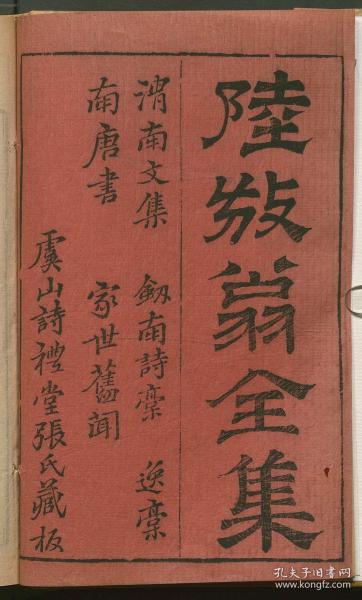 陸放翁全集
渭南文集 劔南詩稾 逸稾
南唐書 家世舊聞
虞山詩禮堂張氏藏板
孔夫子旧书网